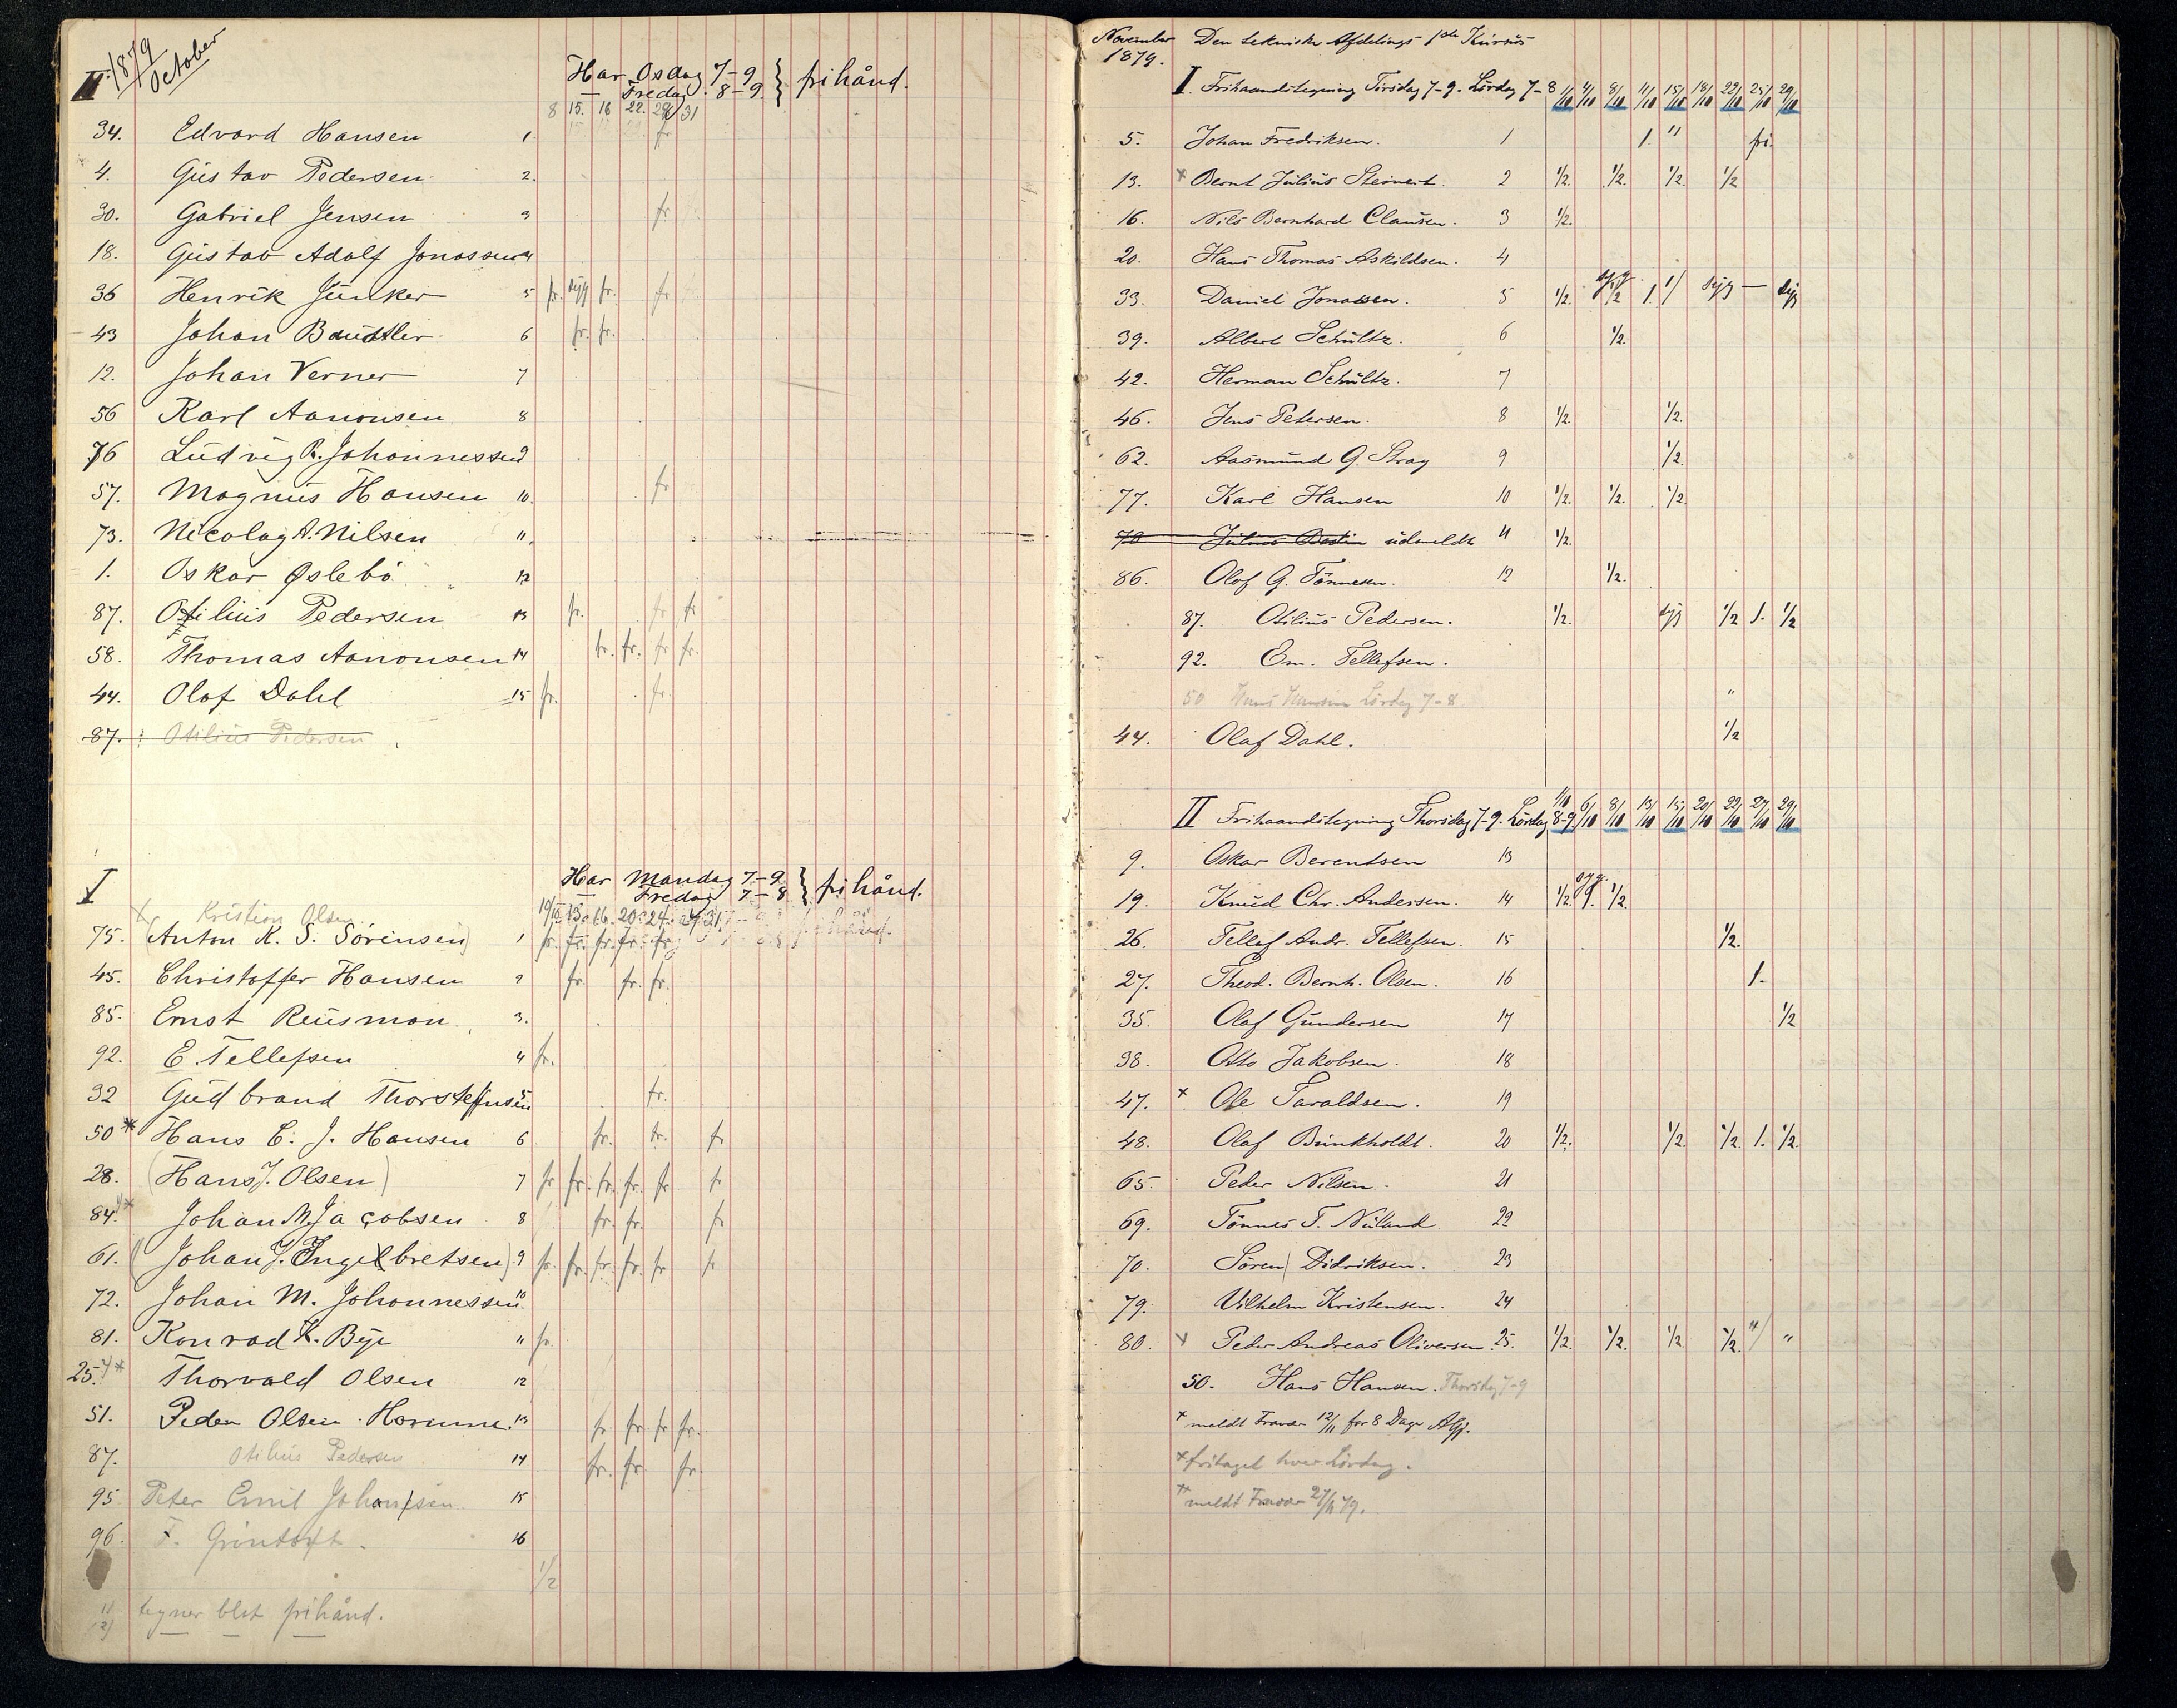 1879
October
II.
Har Osdag 7-9 } frihånd.
— Fredag 8-9.
8 15. 16 22. 29 31
34. Edvard Hansen 1. fr
4. Gustav Pedersen 2.
30. Gabriel Jensen 3 fr.
18. Gustav Adolf Jonassen 4
36 Henrik Junker 5 fr. syg fr. fr
43 Johan Baudtler 6 fr. fr.
12. Johan Verner 7
56 Karl Aanonsen 8
76 Ludvig R. Johannessen 9
57. Magnus Hansen 10. fr
73. Nicolay A. Nilsen 11.
1. Oskar Øslebö 12
87. Otilius Pedersen 13 fr. fr fr
58. Thomas Aanonsen 14 fr. fr. fr fr.
44. Olaf Dahl 15 fr. fr.
87. Otilius Pedersen
I
Har Mandag 7-9 } frihånd.
— Fredag 7-8
Kristian Olsen
75. (Anton K. S. Sörensen) 1 fr. fr. fr. fr. fr.
45. Christoffer Hansen 2 fr. fr. fr.
85. Ernst Reusman 3.
92. E. Tellefsen 4 fr.
32 Gudbrand Thorstensen 5 fr.
50 * Hans C. J. Hansen 6 fr. fr. fr
28. (Hans J. Olsen) 7 fr fr. fr. fr. fr fr
84. * Johan M. Jacobsen 8 fr. fr. fr
61. (Johan J. Engelbretsen) 9 fr. fr. fr. fr. fr fr
72. Johan M. Johannessen 10
81. Konrad K. Bye 11 fr.
25. * Thorvald Olsen 12
51. Peder Olsen Homme. 13 fr. fr. fr fr.
87. Otilius Pedersen 14 fr. fr. fr.
95. Peter Emil Johansen 15
96. F. Gröntoft. 16
1/2
tegner blot frihånd.
November 1879. Den tekniske Afdelings 1ste Kursus
I. Frihaandstegning Tirsdag 7-9. Lördag 7-8 1/10 4/10 8/10 11/10 15/10 18/10 22/10 25/10 29/10
5. Johan Fredriksen. 1 1. " fri.
13. × Bernt Julius Steinert. 2 1/2. 1/2. 1/2. 1/2
16. Nils Bernhard Clausen. 3 1/2.
20. Hans Thomas Askildsen. 4
33. Daniel Jonassen. 5 1/2. syg 1/2 1. 1/ syg — syg
39. Albert Schultz. 6 1/2.
42. Herman Schultz. 7
46. Jens Petersen. 8 1/2. 1/2.
62. Aasmund G. Stray 9 1/2.
77. Karl Hansen 10 1/2. 1/2. 1/2.
78 Julius Bastin udmeldt 11 1/2.
86. Olaf G. Tönnesen. 12 1/2.
87. Otilius Pedersen. 1/2. syg 1/2 1. 1/2
92. Em. Tellefsen.
50 Hans Hansen Lördag 7-8 "
44. Olaf Dahl. 1/2
II Frihaandstegning Thorsdag 7-9. Lördag 8-9 1/10 6/10 8/10 13/10 15/10 20/10 22/10 27/10 29/10
9. Oskar Berentsen 13
19. Knud Chr. Andersen. 14 1/2. syg. 1. 1/2.
26. Tellef Andr. Tellefsen. 15 1/2.
27. Theod. Bernh. Olsen. 16 1.
35. Olaf Gundersen 17 1/2
38. Otto Jakobsen. 18
47. × Ole Taraldsen. 19
48. Olaf Bunkholdt. 20 1/2. 1/2. 1/2. 1. 1/2.
65. Peder Nilsen. 21
69. Tönnes T. Nuland 22
70. Sören Didriksen. 23
79. Vilhelm Kristensen. 24
80. × Peder Andreas Oliversen. 25. 1/2. 1/2. 1/2 1/2. "/ "
50. Hans Hansen. Thorsdag 7-9
× meldt Fravær 12/11 for 8 Dage
× fritaget hver Lördag.
×× meldt Fravær 27/11 79.